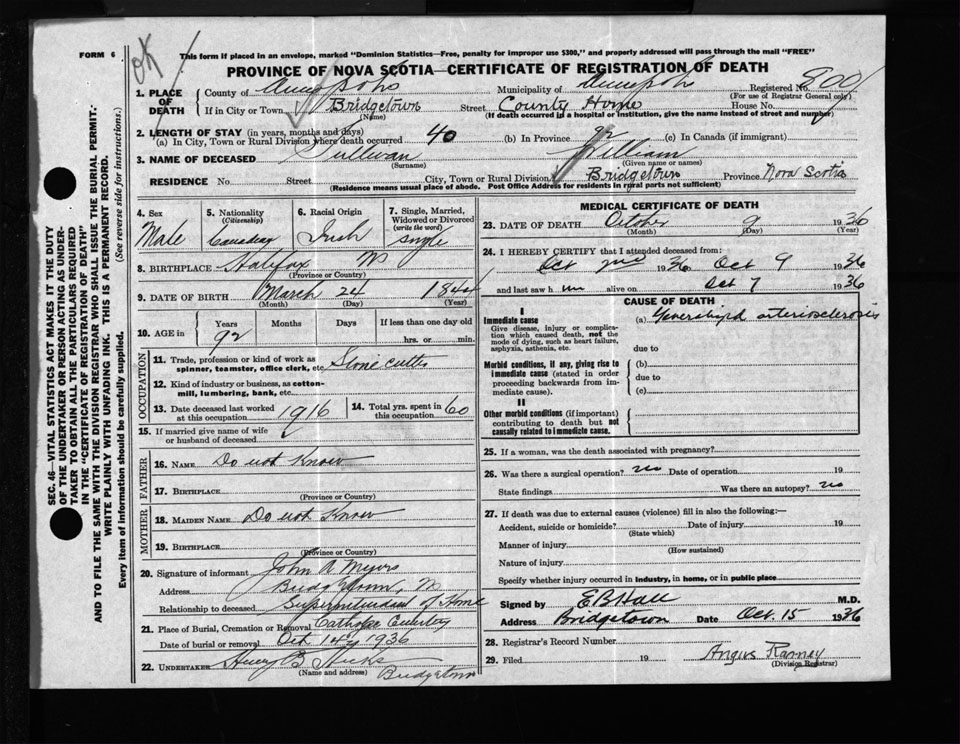 OK
FORM 6
This form if placed in an envelope, marked "Dominion Statistics—Free, penalty for improper use $300," and properly addressed will pass through the mail "FREE"
PROVINCE OF NOVA SCOTIA—CERTIFICATE OF REGISTRATION OF DEATH
1. PLACE OF DEATH
County of Annapolis Municipality of Annapolis Registered No. 800
(For use of Registrar General only)
If in City or Town Bridgetown Street County Home House No.
(Name) (If death occurred in a hospital or institution, give the name instead of street and number)
2. LENGTH OF STAY (in years, months and days)
(a) In City, Town or Rural Division where death occurred 40 (b) In Province 92 (c) In Canada (if immigrant)
3. NAME OF DECEASED Sullivan William
(Surname) (Given name or names)
RESIDENCE No. Street City, Town or Rural Division Bridgetown Province Nova Scotia
(Residence means usual place of abode. Post Office Address for residents in rural parts not sufficient)
4. Sex Male
5. Nationality (Citizenship) Canadian
6. Racial Origin Irish
7. Single, Married, Widowed or Divorced (write the word) Single
8. BIRTHPLACE Halifax NS
(Province or Country)
9. DATE OF BIRTH March 24 1844
(Month) (Day) (Year)
10. AGE in Years Months Days If less than one day old
92 hrs. or min.
OCCUPATION
11. Trade, profession or kind of work as spinner, teamster, office clerk, etc. Stone cutter
12. Kind of industry or business, as cotton-mill, lumbering, bank, etc.
13. Date deceased last worked at this occupation 1916
14. Total yrs. spent in this occupation 60
15. If married give name of wife or husband of deceased
FATHER
16. NAME Do not Know
17. BIRTHPLACE
(Province or Country)
MOTHER
18. MAIDEN NAME Do not Know
19. BIRTHPLACE
(Province or Country)
20. Signature of informant John A Myers
Address Bridgetown, NS
Relationship to deceased Superintendent of Home
21. Place of Burial, Cremation or Removal Catholic Cemetery
Date of burial or removal Oct 1936
22. UNDERTAKER Henry B Hicks
(Name and address) Bridgetown
MEDICAL CERTIFICATE OF DEATH
23. DATE OF DEATH October 9 1936
(Month) (Day) (Year)
24. I HEREBY CERTIFY that I attended deceased from:
Oct 1936 Oct 9 1936
and last saw h im alive on Oct 7 1936
CAUSE OF DEATH
I
Immediate cause
Give disease, injury or complication which caused death, not the mode of dying, such as heart failure, asphyxia, asthenia, etc.
(a) Generalized arteriosclerosis
due to
Morbid conditions, if any, giving rise to immediate cause (stated in order proceeding backwards from immediate cause).
(b)
due to
(c)
II
Other morbid conditions (if important) contributing to death but not causally related to immediate cause.
25. If a woman, was the death associated with pregnancy?
26. Was there a surgical operation? no Date of operation 19
State findings Was there an autopsy? no
27. If death was due to external causes (violence) fill in also the following:—
Accident, suicide or homicide? Date of injury 19
(State which)
Manner of injury
(How sustained)
Nature of injury
Specify whether injury occurred in industry, in home, or in public place
Signed by E B Hall M.D.
Address Bridgetown Date Oct. 15 1936
28. Registrar's Record Number
29. Filed 19 Angus Ramey
(Division Registrar)
SEC. 46—VITAL STATISTICS ACT MAKES IT THE DUTY
OF THE UNDERTAKER OR PERSON ACTING AS UNDER-
TAKER TO OBTAIN ALL THE PARTICULARS REQUIRED
IN THE "CERTIFICATE OF REGISTRATION OF DEATH"
AND TO FILE THE SAME WITH THE DIVISION REGISTRAR WHO SHALL ISSUE THE BURIAL PERMIT.
WRITE PLAINLY WITH UNFADING INK. THIS IS A PERMANENT RECORD.
Every item of information should be carefully supplied. (See reverse side for instructions.)